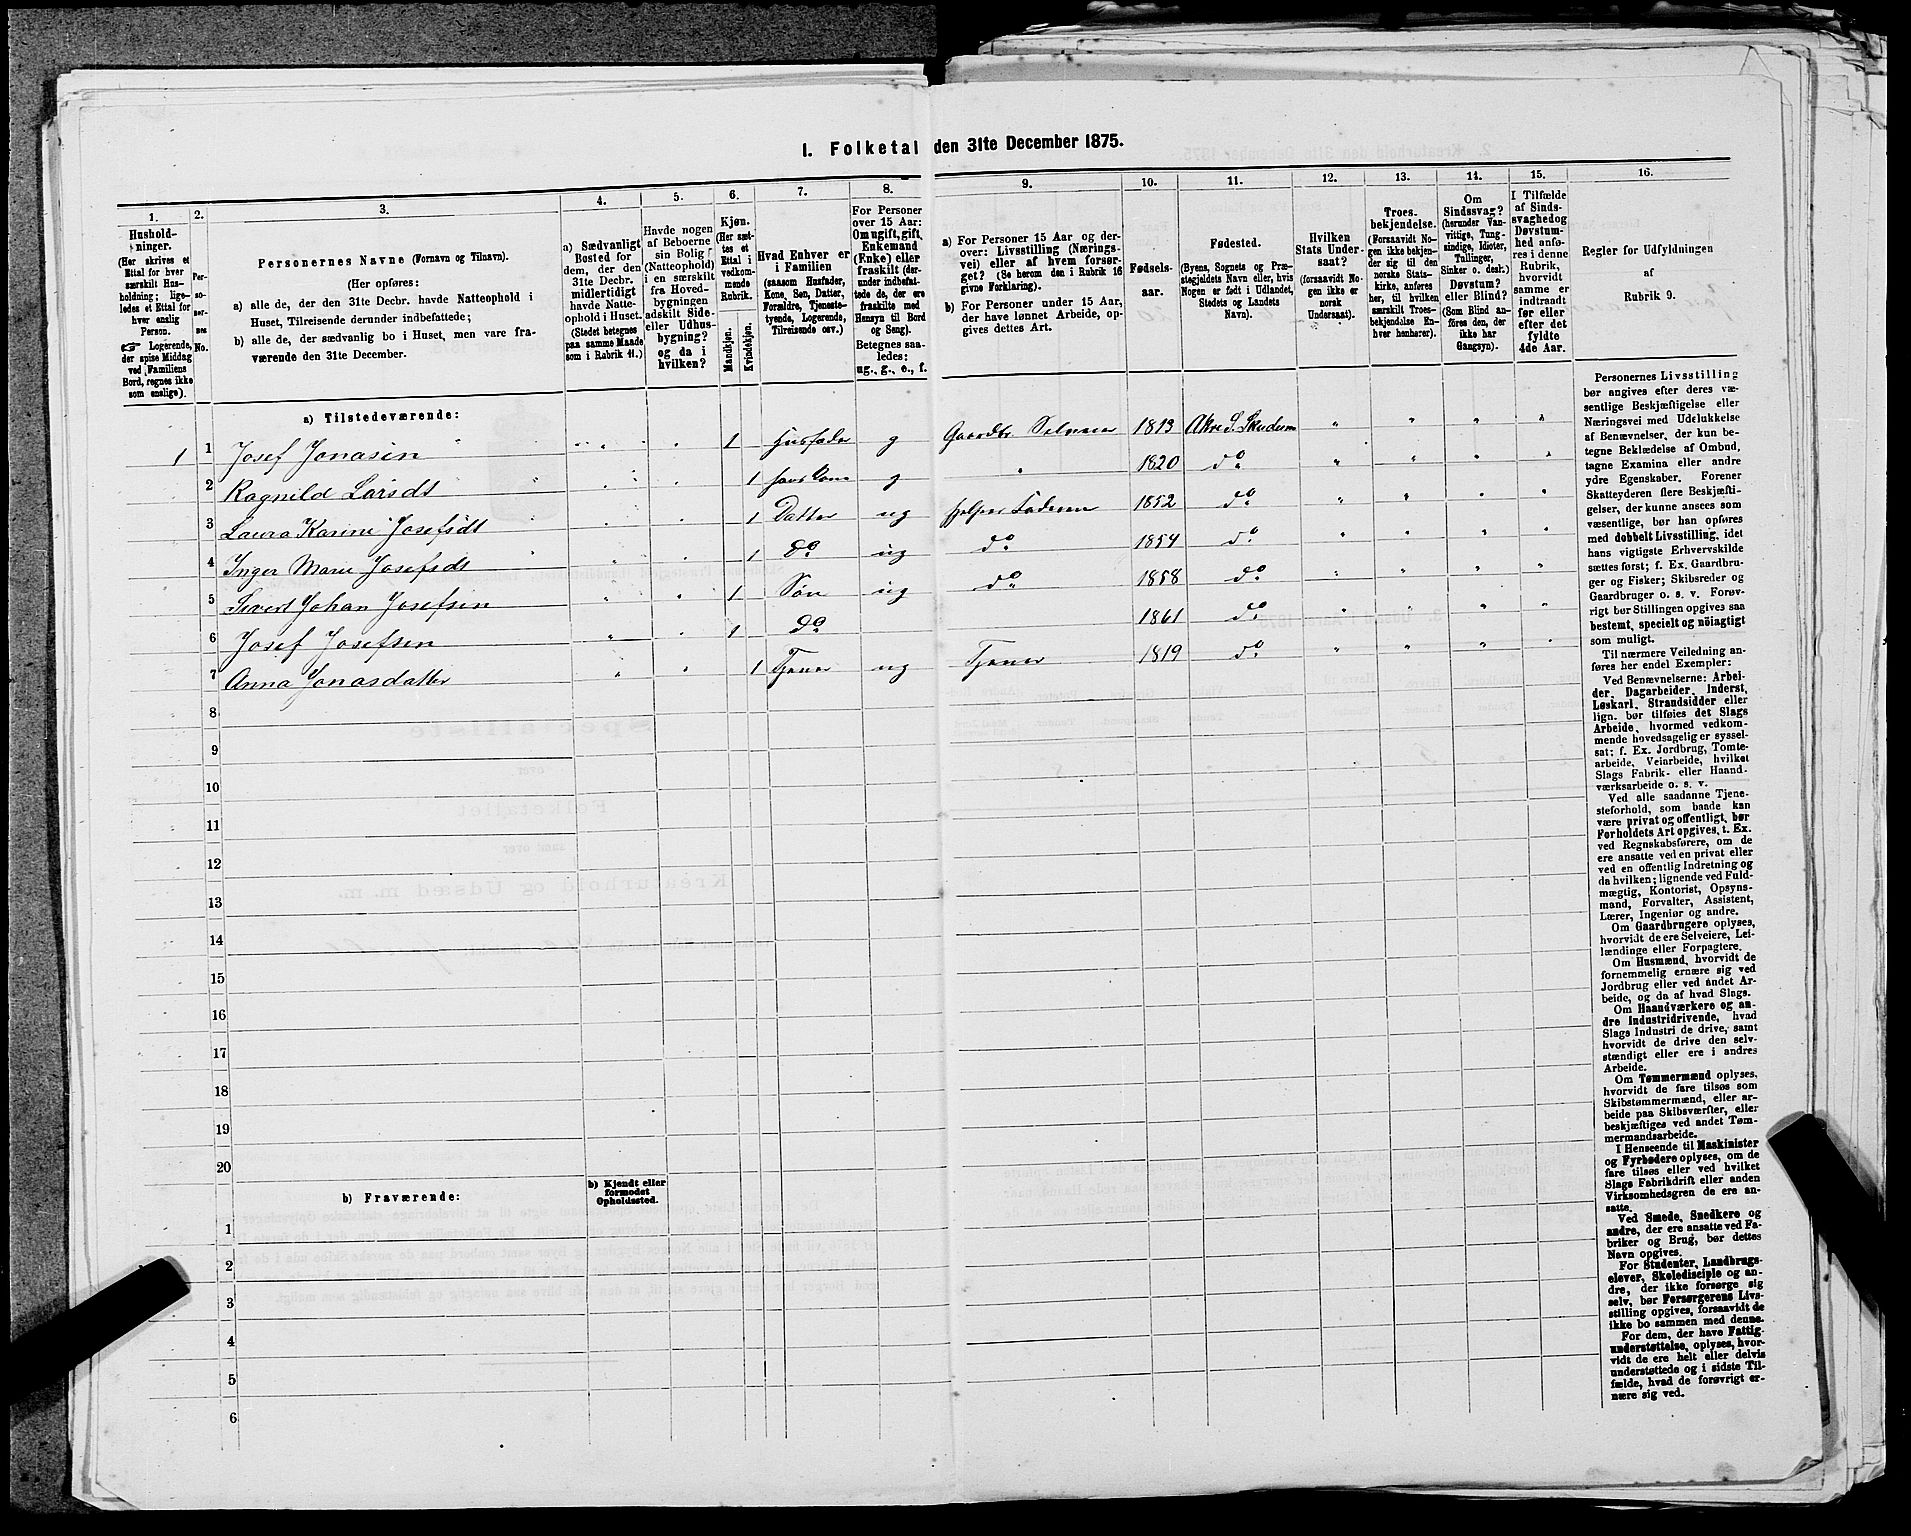 1. Folketal den 31te December 1875.
1.
Hushold-
ninger.
(Her skrives et
Ettal for hver
særskilt Hus-
holdning; lige-
ledes et Ettal for
hver enslig
Person.
☞ Logerende,
der spise Middag
ved Familiens
Bord, regnes ikke
som enslige).
2.
Per-
so-
ner-
nes
No.
3.
Personernes Navne (Fornavn og Tilnavn).
(Her opføres:
a) alle de, der den 31te Decbr. havde Natteophold i
Huset, Tilreisende derunder indbefattede;
b) alle de, der sædvanlig bo i Huset, men vare fra-
værende den 31te December.
4.
a) Sædvanligt
Bosted for
dem, der den
31te Decbr.
midlertidigt
havde Natte-
ophold i Huset.
(Stedet betegnes
paa samme Maade
som i Rubrik 11.)
5.
Havde nogen
af Beboerne
sin Bolig
(Natteophold)
i en særskilt
fra Hoved-
bygningen
adskilt Side-
eller Udhus-
bygning?
og da i
hvilken?
6.
Kjøn.
(Her sæt-
tes et
Ettal i
vedkom-
mende
Rubrik.
Mandkjøn.
Kvindekjøn.
7.
Hvad Enhver er
i Familien
(saasom Husfader,
Kone, Søn, Datter,
Forældre, Tjeneste-
tyende, Logerende,
Tilreisende osv.)
8.
For Personer
over 15 Aar:
Om ugift, gift,
Enkemand
(Enke) eller
fraskilt (der-
under indbefat-
tede de, der ere
fraskilte med
Hensyn til Bord
og Seng).
Betegnes saa-
ledes:
ug., g., e., f.
9.
a) For Personer 15 Aar og der-
over: Livsstilling (Nærings-
vei) eller af hvem forsør-
get? (Se herom den i Rubrik 16
givne Forklaring).
b) For Personer under 15 Aar,
der have lønnet Arbeide, op-
gives dettes Art.
10.
Fødsels-
aar.
11.
Fødested.
(Byens, Sognets og Præ-
stegjeldets Navn eller, hvis
Nogen er født i Udlandet,
Stedets og Landets
Navn).
12.
Hvilken
Stats Under-
saat?
(forsaavidt No-
gen ikke er
norsk
Undersaat).
13.
Troes-
bekjendelse.
(Forsaavidt No-
gen ikke bekjen-
der sig til den
norske Stats-
kirke, anføres
her, til hvilken
særskilt Troes-
bekjendelse En-
hver henhører).
14.
Om
Sindssvag?
(herunder Van-
vittige, Tung-
sindige, Idioter,
Tullinger,
Sinker o. desl.)
Døvstum?
eller Blind?
(Som Blind an-
føres den, der
ikke har
Gangsyn).
15.
I Tilfælde
af Sinds-
svaghed og
Døvstum-
hed anfø-
res i denne
Rubrik,
hvorvidt
samme er
indtraadt
før eller
efter det
fyldte
4de Aar.
16.
Regler for Udfyldningen
af
Rubrik 9.
a) Tilstedeværende:
1 1 Josef Jonasen " " 1 Husfader g Gaardbr Selveier 1813 Akre S. Skudenes " " " "
2 Ragnild Larsdt " " 1 hans Kone g " 1820 do " " " "
3 Laura Karine Josefsdt " " 1 Datter ug hjelper Faderen 1852 do " " " "
4 Inger Marie Josefsdt " " 1 do ug do 1854 do " " " "
5 Sivert Johan Josefsen " " 1 Søn ug do 1858 do " " " "
6 Josef Josefsen " " 1 do 1861 do " " " "
7 Anna Jonasdatter " " 1 Tjener ug Tjener 1819 do " " " "
8
9
10
11
12
13
14
15
16
17
18
19
20
b) Fraværende:
b) Kjendt eller
formodet
Opholdssted.
1
2
3
4
5
6
Personernes Livsstilling
bør angives efter deres væ-
sentlige Beskjæftigelse eller
Næringsvei med Udelukkelse
af Benævnelser, der kun be-
tegne Beklædelse af Ombud,
tagne Examina eller andre
ydre Egenskaber. Forener
Skatteyderen flere Beskjæfti-
gelser, der kunne ansees som
væsentlige, bør han opføres
med dobbelt Livsstilling, idet
hans vigtigste Erhvervskilde
sættes først; f. Ex. Gaardbru-
ger og Fisker; Skibsreder og
Gaardbruger o. s. v. Forøv-
rigt bør Stillingen opgives saa
bestemt, specielt og nøiagtigt
som muligt.
Til nærmere Veiledning an-
føres her endel Exempler:
Ved Benævnelserne: Arbei-
der, Dagarbeider, Inderst,
Løskarl, Strandsidder eller
lign. bør tilføies det Slags
Arbeide, hvormed vedkom-
mende hovedsagelig er syssel-
sat; f. Ex. Jordbrug, Tomte-
arbeide, Veiarbeide, hvilket
Slags Fabrik- eller Haand-
værksarbeide o. s. v.
Ved alle saadanne Tjene-
steforhold, som baade kan
være privat og offentligt, bør
Forholdets Art opgives, t. Ex.
ved Regnskabsførere, om de
ere ansatte ved en privat eller
ved en offentlig Indretning og
da hvilken; lignende ved Fuld-
mægtig, Kontorist, Opsyns-
mand, Forvalter, Assistent,
Lærer, Ingeniør og andre.
Om Gaardbrugere oplyses,
hvorvidt de ere Selveiere, Lei-
lændinge eller Forpagtere.
Om Husmænd, hvorvidt de
fornemmelig ernære sig ved
Jordbrug eller ved andet Ar-
beide, og da af hvad Slags.
Om Haandværkere og an-
dre Industridrivende, hvad
Slags Industri de drive, samt
hvorvidt de drive den selv-
stændigt eller ere i andres
Arbeide.
Om Tømmermænd oplyses,
hvorvidt de fare tilsøs som
Skibstømmermænd, eller ar-
beide paa Skibsværfter, eller
beskjæftiges ved andet Tøm-
mermandsarbeide.
I Henseende til Maskinister
og Fyrbødere oplyses, om de
fare tilsøs eller ved hvilket
Slags Fabrikdrift eller anden
Virksomhedsgren de ere an-
satte.
Ved Smede, Snedkere og
andre, der ere ansatte ved Fa-
briker og Brug, bør dettes
Navn opgives.
For Studenter, Landbrugs-
elever, Skoledisciple og an-
dre, der ikke forsørge sig
selv, bør Forsørgerens Livs-
stilling opgives, forsaavidt de
ikke bo sammen med denne.
For dem, der have Fattig-
understøttelse, oplyses, hvor-
vidt de ere helt eller delvis
understøttede og i sidste Til-
fælde, hvad de forøvrigt er-
nære sig ved.